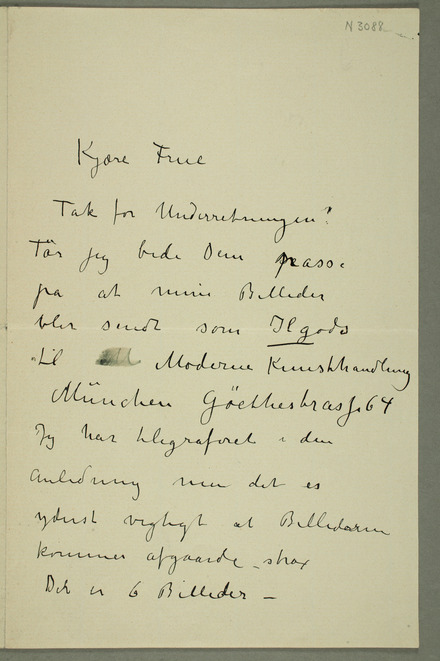 N 3088
Kjære Frue
Tak for Underretningen!
Tör jeg bede Dem passe
på at mine Billeder
blir sendt som Ilgods
til Moderne Kunsthandlung
München Göethestrasse 64
Jeg har telegraferet i den
Anledning men det er
yderst vigtigt at Billederne
kommer afgaarde strax
Det er 6 Billeder –